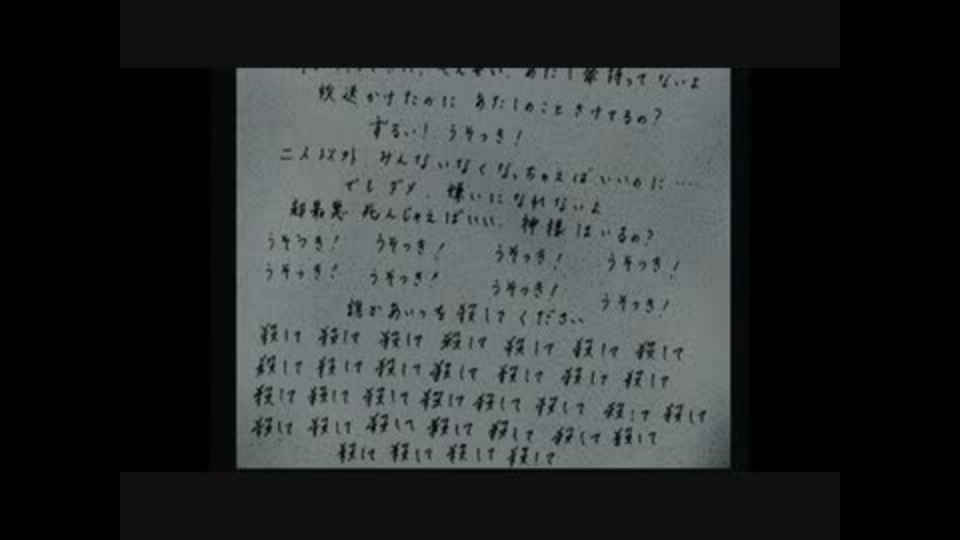 あたし傘持ってないよ
放送かけたのに あたしのことさけてるの?
ずるい! うそつき!
二人以外 みんないなくなっちゃえばいいのに……
でもダメ、嫌いになれないよ
超最悪 死んじゃえばいい、神様はいるの?
うそつき! うそつき! うそつき! うそつき!
うそつき! うそつき! うそつき! うそつき!
誰かあいつを殺してください
殺して 殺して 殺して 殺して 殺して 殺して 殺して
殺して 殺して 殺して 殺して 殺して 殺して 殺して
殺して 殺して 殺して 殺して 殺して 殺して 殺して 殺して
殺して 殺して 殺して 殺して 殺して 殺して 殺して
殺して 殺して 殺して 殺して